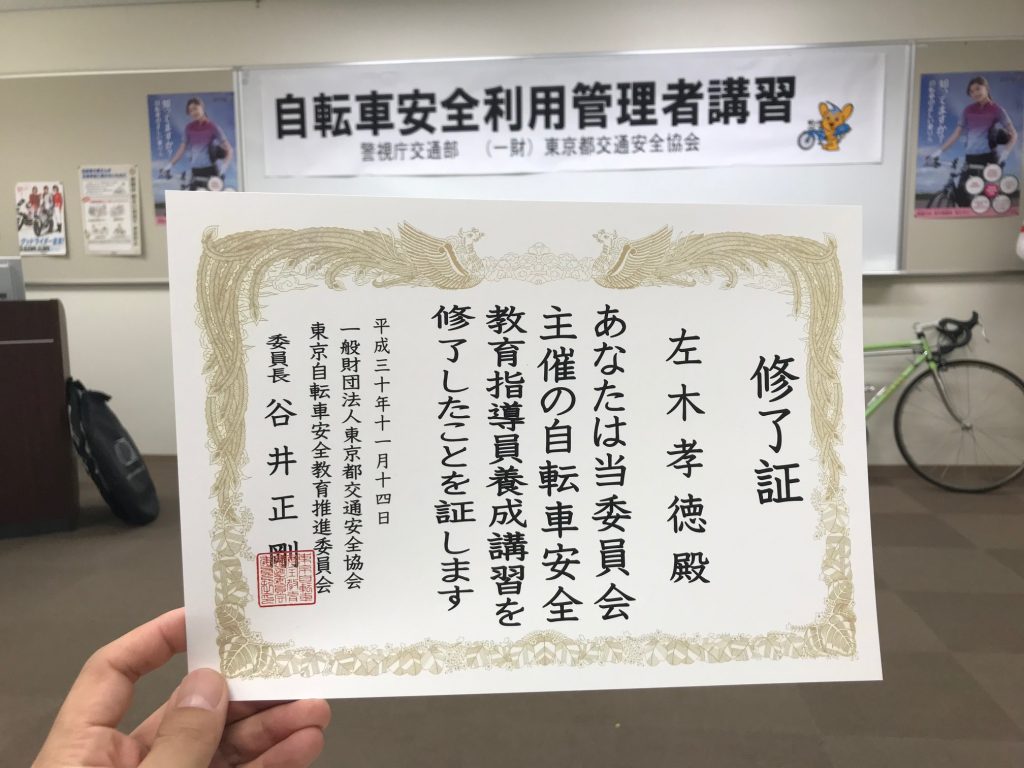 自転車安全利用管理者講習
警視庁交通部　（一財）東京都交通安全協会
修了証
左木孝徳殿
あなたは当委員会
主催の自転車安全
教育指導員養成講習を
修了したことを証します
平成三十年十一月十四日
一般財団法人東京都交通安全協会
東京自転車安全教育推進委員会
委員長　谷井正剛